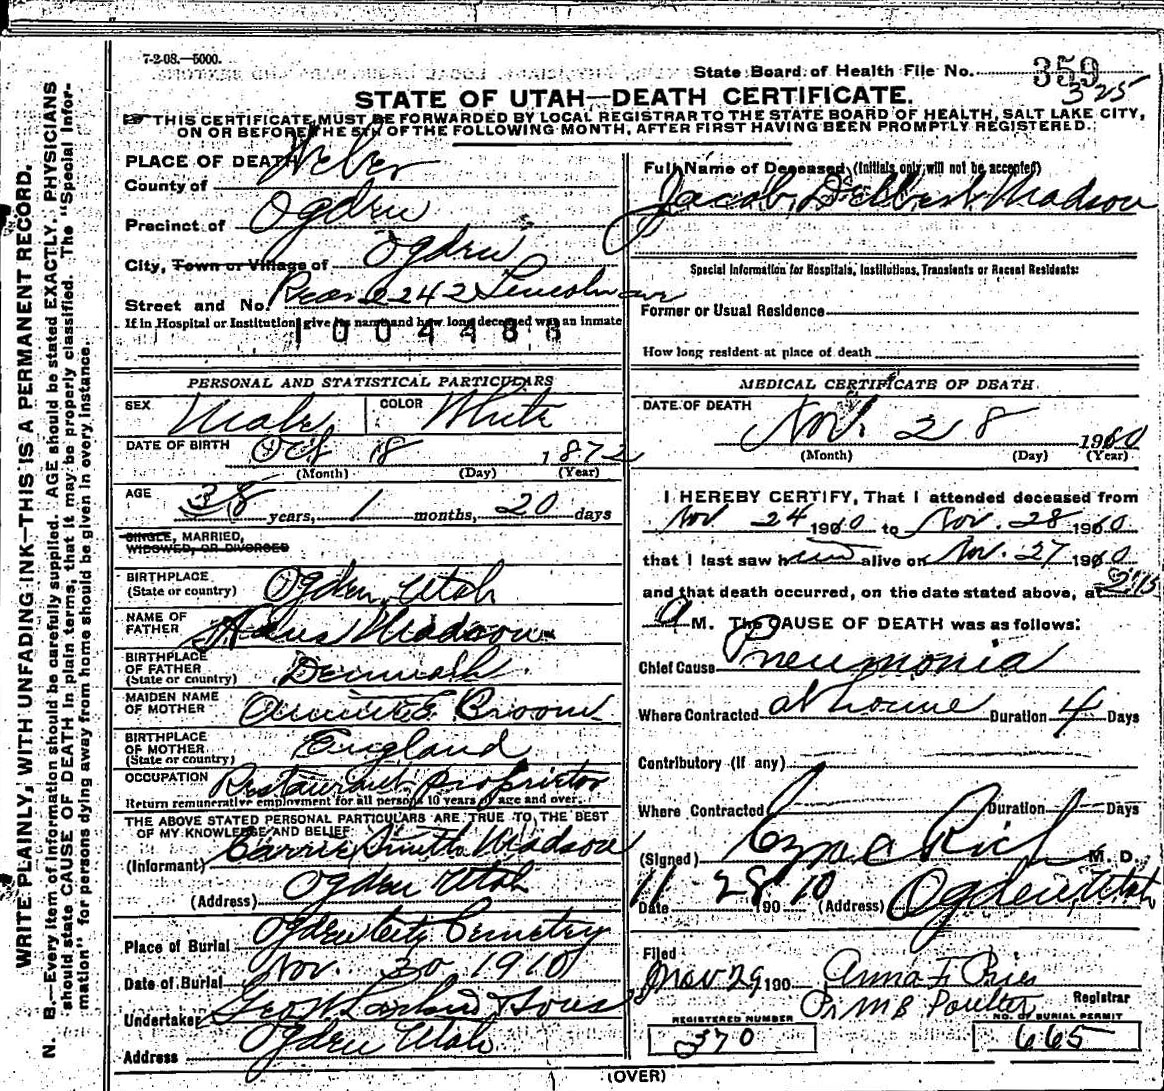 7-2-08.—5000.
State Board of Health File No. 359
325
STATE OF UTAH—DEATH CERTIFICATE.
THIS CERTIFICATE MUST BE FORWARDED BY LOCAL REGISTRAR TO THE STATE BOARD OF HEALTH, SALT LAKE CITY,
ON OR BEFORE THE 5TH OF THE FOLLOWING MONTH, AFTER FIRST HAVING BEEN PROMPTLY REGISTERED.
WRITE PLAINLY, WITH UNFADING INK—THIS IS A PERMANENT RECORD.
N. B.—Every item of information should be carefully supplied. AGE should be stated EXACTLY. PHYSICIANS
should state CAUSE OF DEATH in plain terms, that it may be properly classified. The "Special Infor-
mation" for persons dying away from home should be given in every instance.
PLACE OF DEATH
County of Weber
Precinct of Ogden
City, Town or Village of Ogden
Street and No. Rear 2242 Lincoln ave
If in Hospital or Institution, give its name and how long deceased was an inmate
1004488
PERSONAL AND STATISTICAL PARTICULARS
SEX Male COLOR White
DATE OF BIRTH Oct 18 1872
(Month) (Day) (Year)
AGE 38 years, 1 months, 20 days
SINGLE, MARRIED,
WIDOWED, OR DIVORCED
BIRTHPLACE
(State or country) Ogden, Utah
NAME OF
FATHER Madson
BIRTHPLACE
OF FATHER
(State or country) Denmark
MAIDEN NAME
OF MOTHER E. Broom
BIRTHPLACE
OF MOTHER
(State or country) England
OCCUPATION Restaurant proprietor
Return remunerative employment for all persons 10 years of age and over.
THE ABOVE STATED PERSONAL PARTICULARS ARE TRUE TO THE BEST
OF MY KNOWLEDGE AND BELIEF
(Informant) Carrie Smith Madson
(Address) Ogden Utah
Place of Burial Ogden City Cemetery
Date of Burial Nov. 30 1910
Undertaker Geo W Larkin & Sons
Address Ogden Utah
Full Name of Deceased (Initials only will not be accepted)
Jacob Delbert Madson
Special Information for Hospitals, Institutions, Transients or Recent Residents:
Former or Usual Residence
How long resident at place of death
MEDICAL CERTIFICATE OF DEATH
DATE OF DEATH
Nov. 28 1910
(Month) (Day) (Year)
I HEREBY CERTIFY, That I attended deceased from
Nov. 24 1910 to Nov. 28 1910
that I last saw him alive on Nov. 27 1910
and that death occurred, on the date stated above, at 2:15
a M. The CAUSE OF DEATH was as follows:
Chief Cause Pneumonia
Where Contracted at home Duration 4 Days
Contributory (if any)
Where Contracted Duration Days
(Signed) Ezra C Rich M. D.
Date 11 - 28 1910 (Address) Ogden, Utah
Filed
Nov 29 190 Anna F. Pries
Pr M B Poulter Registrar
REGISTERED NUMBER 370
NO. OF BURIAL PERMIT 665
(OVER)